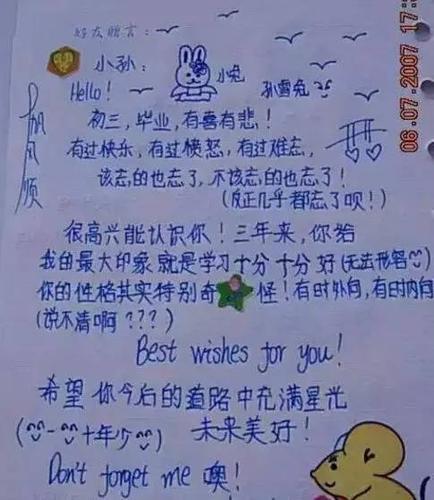 好友赠言：
小孙：
小兔
孙雪兔
Hello!
一帆风顺
初三，毕业，有喜有悲！
有过快乐，有过愤怒，有过难忘，
该忘的也忘了，不该忘的也忘了！
(反正几乎都忘了呗！)
很高兴能认识你！三年来，你给
我的最大印象就是学习十分十分好(无法形容)
你的性格其实特别奇怪！有时外向，有时内向
(说不清啊？？？)
Best wishes for you!
希望你今后的道路中充满星光
未来美好！
Don't forget me 噢！
06.07.2007 17: